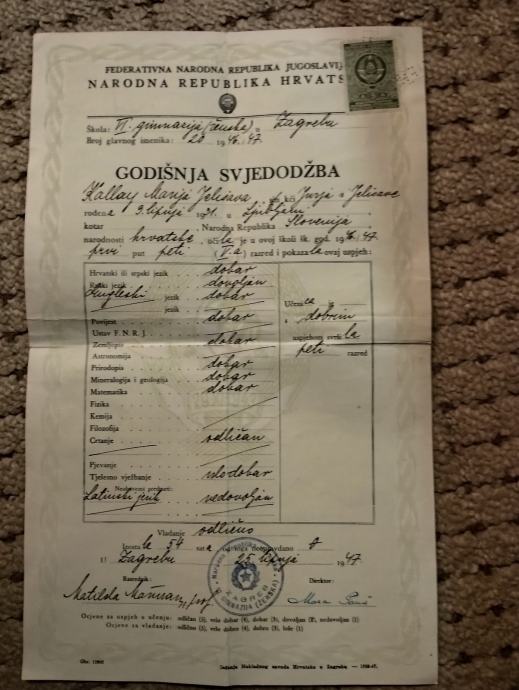 FEDERATIVNA NARODNA REPUBLIKA JUGOSLAVIJ
NARODNA REPUBLIKA HRVATS
Škola: VI. gimnazija (ženska) u Zagrebu
Broj glavnog imenika: 20 1946/47.
GODIŠNJA SVJEDODŽBA
Kallay Marija Jelisava kći Jurja i Jelisave
rođena 3. lipnja 1931. u Ljubljani
kotar , Narodna Republika Slovenija
narodnosti hrvatske, učila je u ovoj školi šk. god. 1946/47.
prvi put peti (V.a) razred i pokazala ovaj uspjeh:
Hrvatski ili srpski jezik dobar
Ruski jezik dovoljan
Engleski jezik dobar
jezik
Povijest dobar
Ustav F.N.R.J.
Zemljopis dobar
Astronomija
Prirodopis dobar
Mineralogija i geologija dobar
Matematika dobar
Fizika
Kemija
Filozofija
Crtanje odličan
Pjevanje
Tjelesno vježbanje vrlo dobar
Neobavezni predmeti:
Latinski jezik nedovoljan
Učenica je
s dobrim
uspjehom svršila
peti razred
Vladanje odlično
Izostala 54 sata od toga neopravdano 0
U Zagrebu 25. lipnja 1947
Razrednik: Direktor:
Matilda prof.
ZAGREB
GIMNAZIJA (ŽENSKA)
Ocjene za uspjeh u učenju: odličan (5), vrlo dobar (4), dobar (3), dovoljan (2), nedovoljan (1)
Ocjene za vladanje: odlično (5), vrlo dobro (4), dobro (3), loše (1)
Izdanje Nakladnog zavoda Hrvatske u Zagrebu — 1946-47.